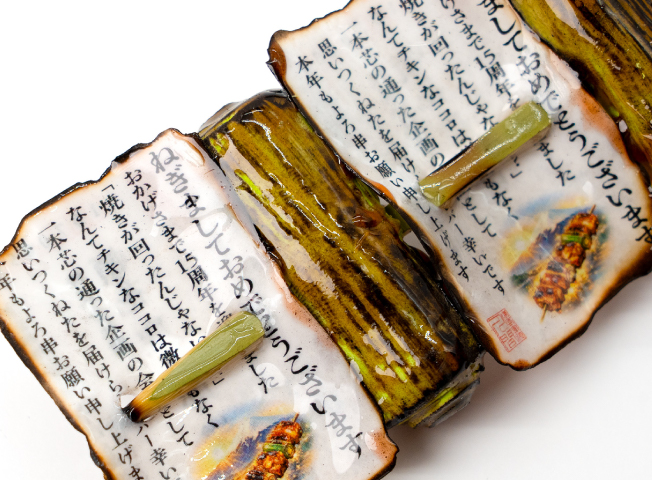 ましておめでとうございます
げさまで15周年 ました
焼きが回ったんじゃな 」
なんてチキンなココロは もなく
一本芯の通った企画の として
思いつくねたを届け バー幸いです
本年もよろ串お願い申し上げます
ねぎましておめでとうございます
おかげさまで15周年を ました
「焼きが回ったんじゃない 」
なんてチキンなココロは微 もなく
一本芯の通った企画の会 として
思いつくねたを届けら バー幸い
年もよろ串お願い申し上げま